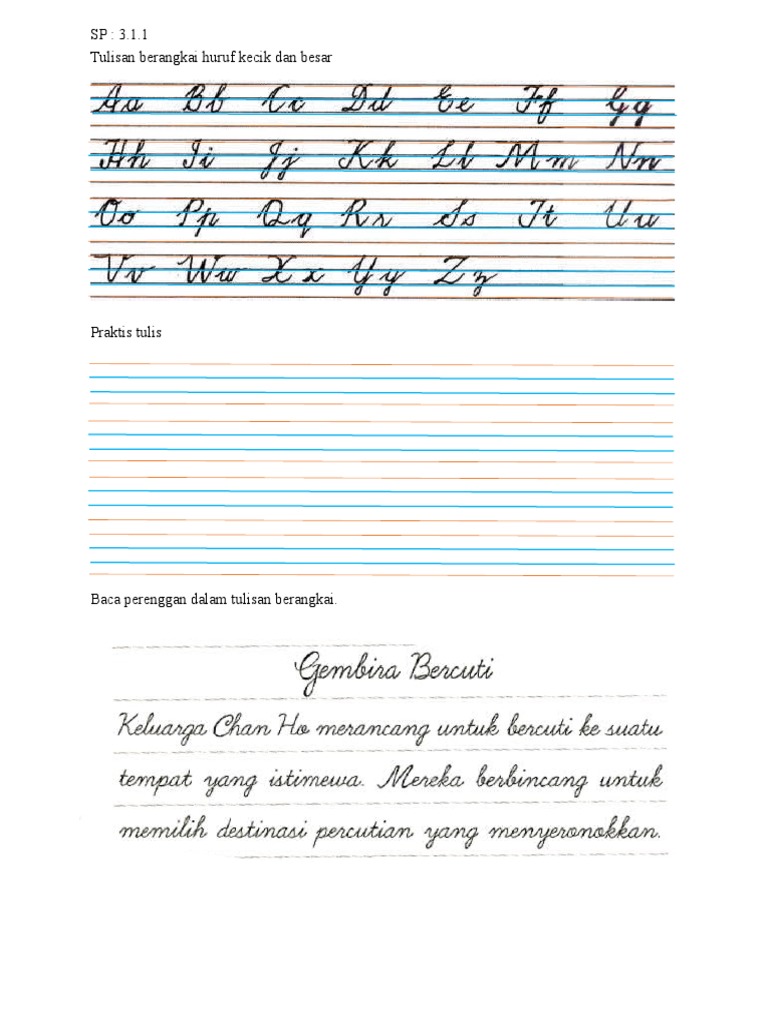 SP : 3.1.1
Tulisan berangkai huruf kecik dan besar
Aa Bb Cc Dd Ee Ff Gg
Hh Ii Jj Kk Ll Mm Nn
Oo Pp Qq Rr Ss Tt Uu
Vv Ww Xx Yy Zz
Praktis tulis
Baca perenggan dalam tulisan berangkai.
Gembira Bercuti
Keluarga Chan Ho merancang untuk bercuti ke suatu
tempat yang istimewa. Mereka berbincang untuk
memilih destinasi percutian yang menyeronokkan.